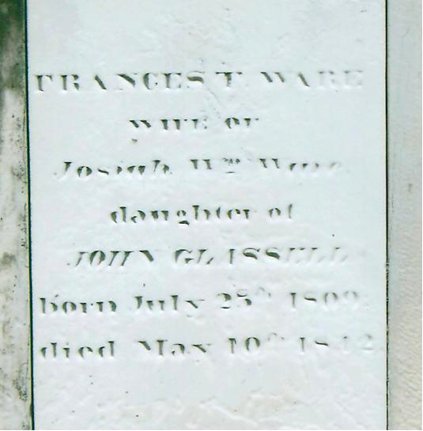 FRANCES T. WARE
WIFE OF
Josiah Wm. Ware
daughter of
JOHN GLASSELL
born July 25th 1809
died May 10th 1842